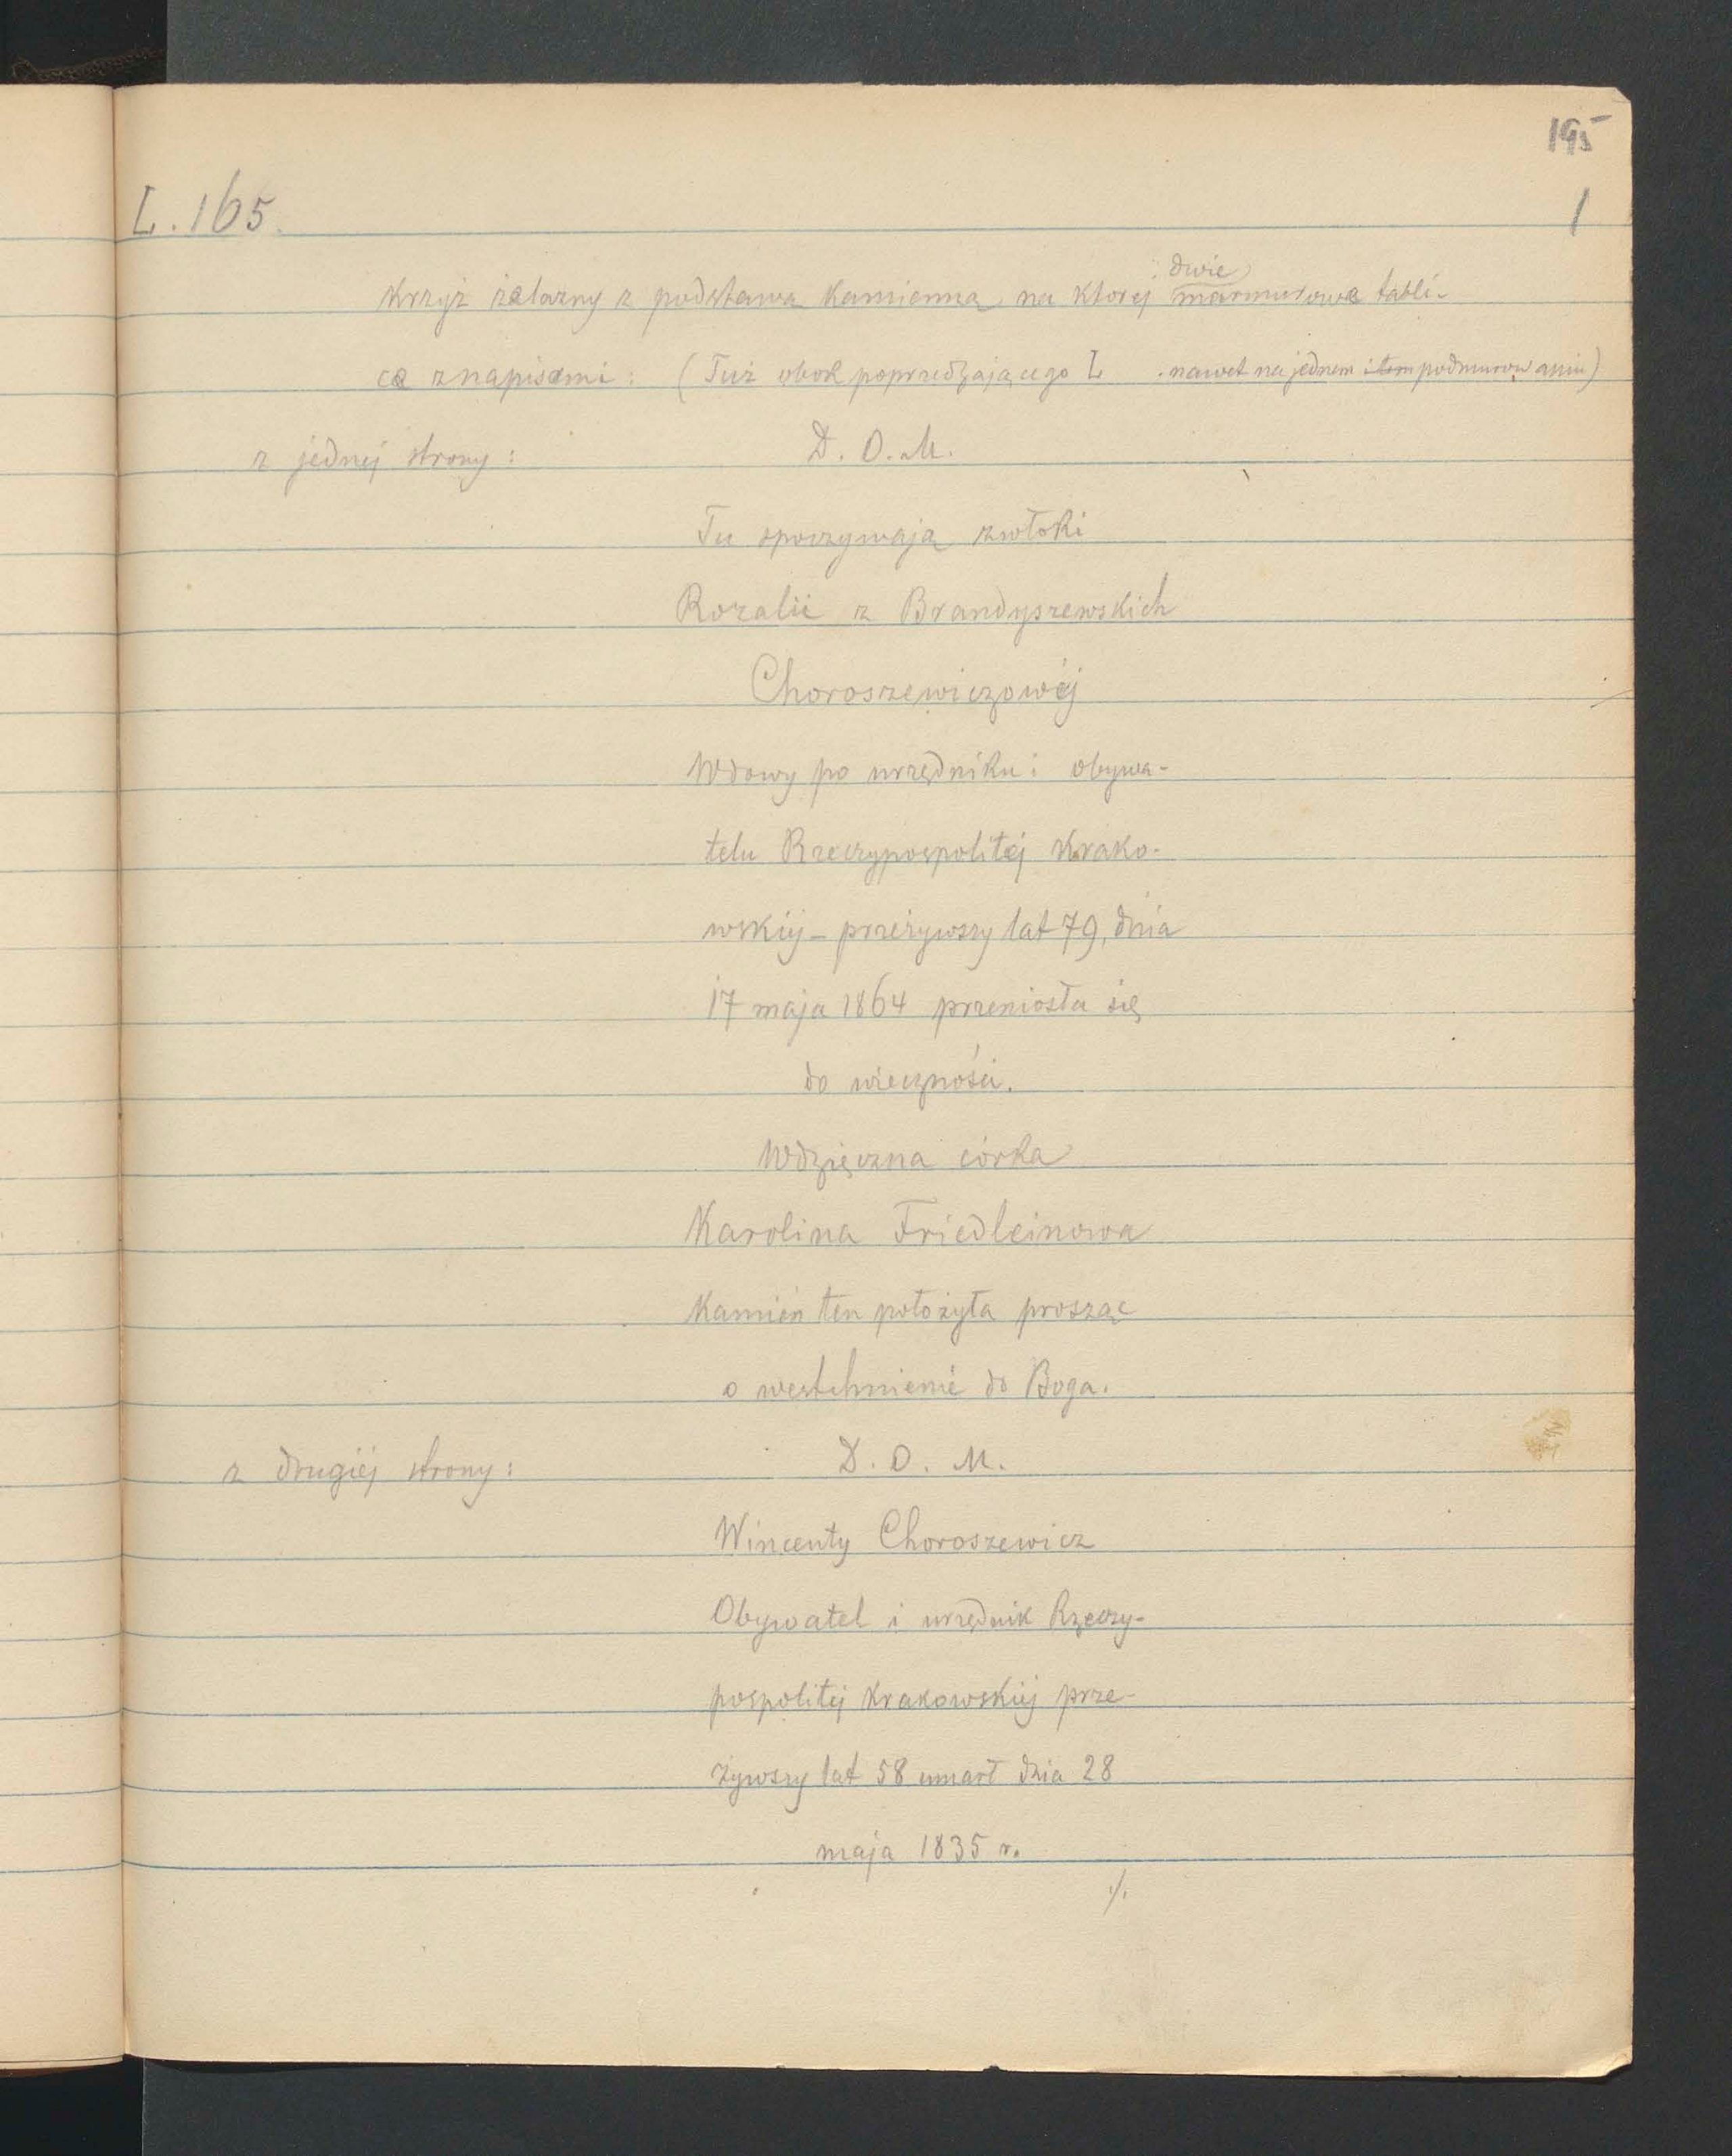 195
L. 165.
1
Krzyż żelazny z podstawą kamienną na której dwie marmurowe tabli-
ce z napisami: (Tuż obok poprzedzającego L . nawet na jednem i tem podmurowaniu)
z jednej strony: D. O. M.
Tu spoczywają zwłoki
Rozalii z Brandyszewskich
Choroszewiczowéj
Wdowy po urzędniku i obywa-
telu Rzeczypospolitéj Krako-
wskiéj – przeżywszy lat 79, dnia
17 maja 1864 przeniosła się
do wieczności.
Wdzięczna córka
Karolina Friedleinowa
Kamień ten położyła prosząc
o westchnienie do Boga.
z drugiéj strony: D. O. M.
Wincenty Choroszewicz
Obywatel i urzędnik Rzeczy-
pospolitéj Krakowskiéj prze-
żywszy lat 58 umarł dnia 28
maja 1835 r.
./.